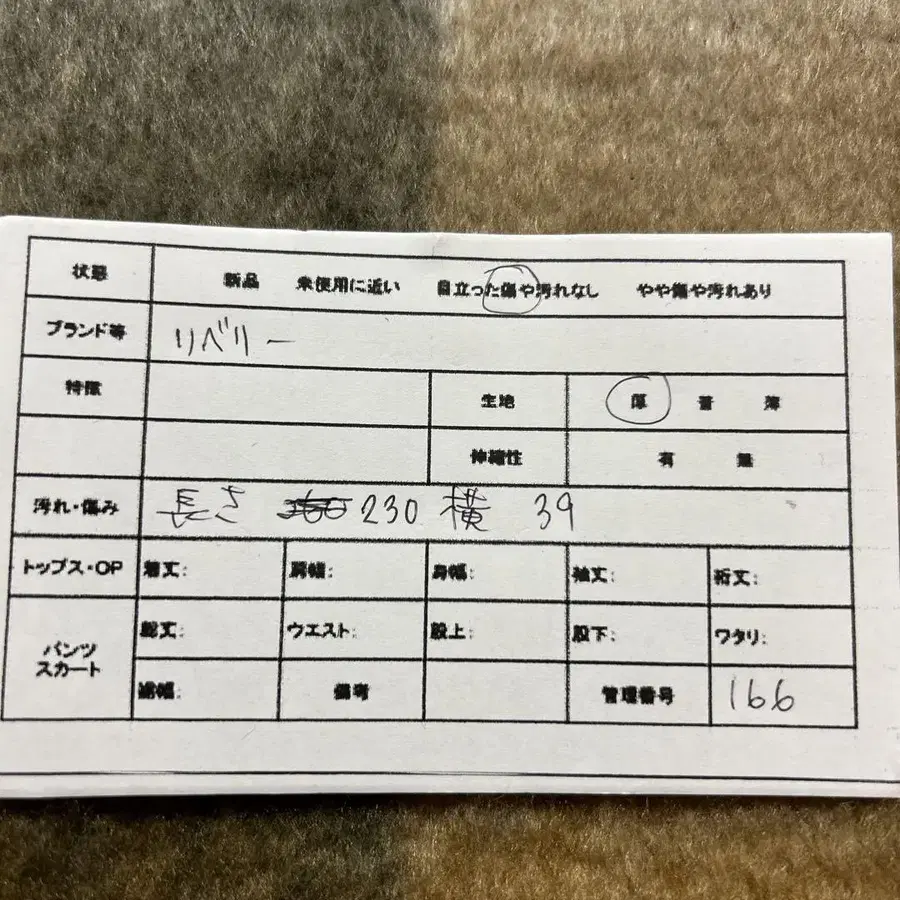 状態 新品 未使用に近い 目立った傷や汚れなし やや傷や汚れあり
ブランド等 リベリー
特徴 生地 厚 普 薄
伸縮性 有 無
汚れ・傷み 長さ 230 横 39
トップス・OP 着丈: 肩幅: 身幅: 袖丈: 裄丈:
パンツ スカート 総丈: ウエスト: 股上: 股下: ワタリ:
裾幅: 備考 管理番号 166